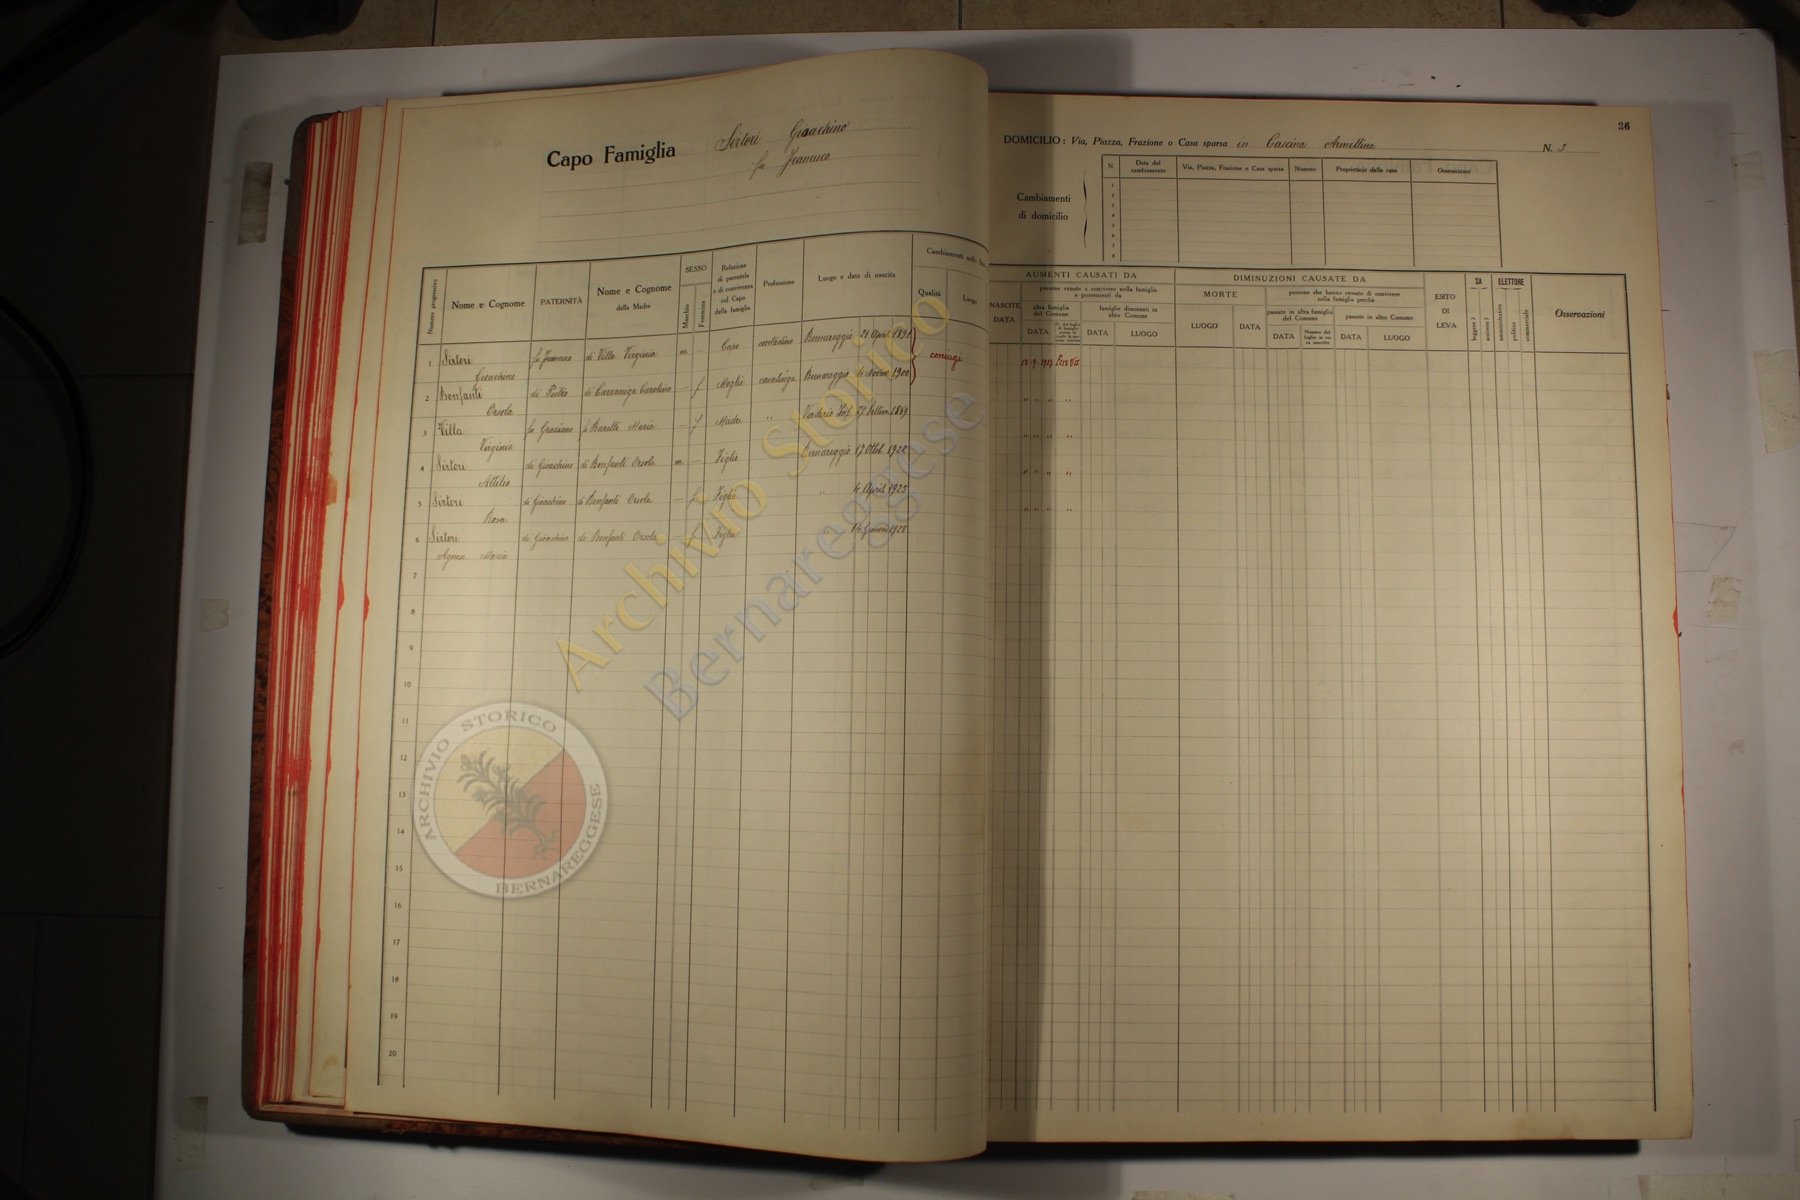 Capo Famiglia Sirtori Gioachino
fu Francesco
36
DOMICILIO: Via, Piazza, Frazione o Casa sparsa in Cascina Armellina N. 3
Cambiamenti
di domicilio
N. Data del cambiamento Via, Piazza, Frazione o Casa sparsa Numero Proprietario della casa Osservazioni
1
2
3
4
5
6
7
8
Numero progressivo Nome e Cognome PATERNITÀ Nome e Cognome della Madre SESSO Maschio Femmina Relazione di parentela o di convivenza col Capo della famiglia Professione Luogo e data di nascita Cambiamenti nello Qualità Luogo
1 Sirtori fu Francesco di Villa Virginia m — Capo contadino Bernareggio 21 April 1891 coniugi
Gioachino
2 Bonfanti di Pietro di Carzaniga Carolina — f Moglie casalinga Bernareggio 1900
Orsola
3 Villa fu Graziano fu Barelli Maria — f Madre " Verderio Inf. 1869
Virginia
4 Sirtori di Gioachino di Bonfanti Orsola m — Figlio Bernareggio 17 Ottob 1922
Attilio
5 Sirtori di Gioachino di Bonfanti Orsola — f Figlia " 4 April 1925
Rosa
6 Sirtori di Gioachino di Bonfanti Orsola — f Figlia " 1928
Agnese Maria
7
8
9
10
11
12
13
14
15
16
17
18
19
20
AUMENTI CAUSATI DA
NASCITE DATA
persone venute a convivere nella famiglia e provenienti da
altra famiglia del Comune
DATA
famiglie dimoranti in altro Comune
DATA LUOGO
DIMINUZIONI CAUSATE DA
MORTE
LUOGO DATA
persone che hanno cessato di convivere nella famiglia perchè
passate in altra famiglia del Comune
DATA Numero del foglio in cui va inscritto
passate in altro Comune
DATA LUOGO
ESITO DI LEVA
SA
leggere? scrivere?
ELETTORE
amministrativo politico commerciale
Osservazioni
Archivio Storico
Bernareggese
ARCHIVIO STORICO
BERNAREGGESE